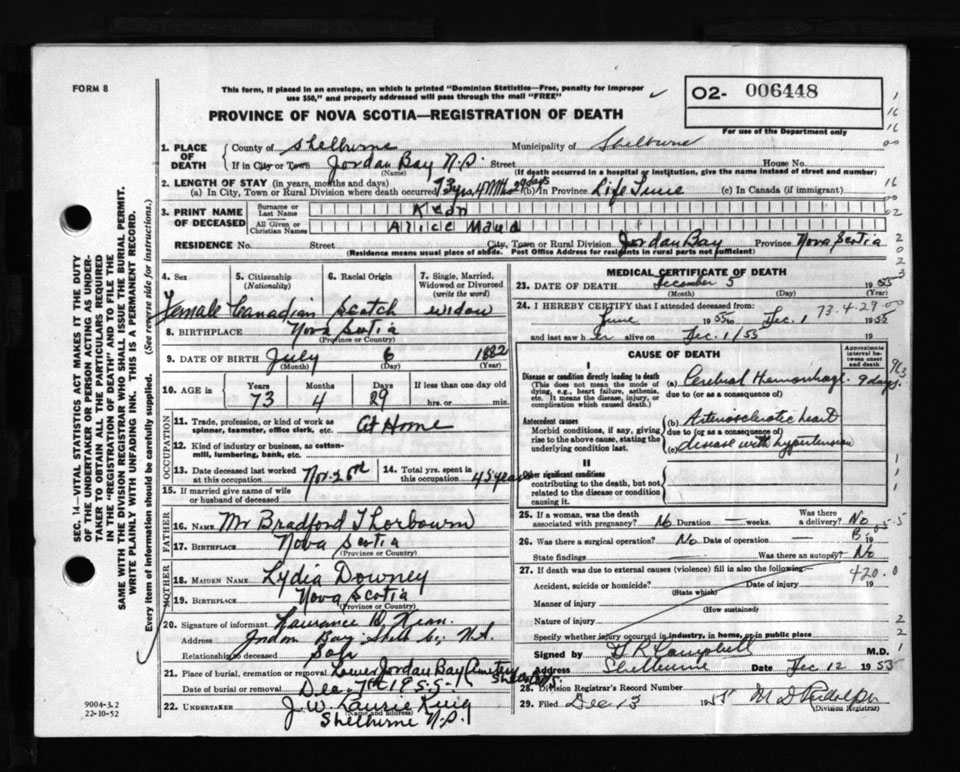 FORM 8
This form, if placed in an envelope, on which is printed "Dominion Statistics—Free, penalty for improper
use $50," and properly addressed will pass through the mail "FREE"
O2- 006448
For use of the Department only
PROVINCE OF NOVA SCOTIA—REGISTRATION OF DEATH
1. PLACE OF DEATH
County of Shelburne Municipality of Shelburne
If in City or Town Jordan Bay N.S. Street House No.
(Name) (If death occurred in a hospital or institution, give the name instead of street and number)
2. LENGTH OF STAY (in years, months and days)
(a) In City, Town or Rural Division where death occurred 73 yrs. 4 Mth 29 days (b) in Province Life Time (c) In Canada (if immigrant)
3. PRINT NAME OF DECEASED
Surname or Last Name Kean
All Given or Christian Names Alice Maud
RESIDENCE No. Street City, Town or Rural Division Jordan Bay Province Nova Scotia
(Residence means usual place of abode. Post Office Address for residents in rural parts not sufficient)
4. Sex
Female
5. Citizenship
(Nationality)
Canadian
6. Racial Origin
Scotch
7. Single, Married,
Widowed or Divorced
(write the word)
widow
8. BIRTHPLACE Nova Scotia
(Province or Country)
9. DATE OF BIRTH July 6 1882
(Month) (Day) (Year)
10. AGE in
Years Months Days If less than one day old
73 4 29 hrs. or min.
OCCUPATION
11. Trade, profession, or kind of work as
spinner, teamster, office clerk, etc. At Home
12. Kind of industry or business, as cotton-
mill, lumbering, bank, etc.
13. Date deceased last worked
at this occupation Nov. 26th
14. Total yrs. spent in
this occupation 45 years
15. If married give name of wife
or husband of deceased
FATHER
16. NAME Mr Bradford Thorbourn
17. BIRTHPLACE Nova Scotia
(Province or Country)
MOTHER
18. MAIDEN NAME Lydia Downey
19. BIRTHPLACE Nova Scotia
(Province or Country)
20. Signature of informant Laurance D. Kean.
Address Jordan Bay Shelb Co. N.S.
Relationship to deceased Son
21. Place of burial, cremation or removal Lower Jordan Bay Cemetery
Date of burial or removal Dec. 7th 1955
22. UNDERTAKER J.W. Laurie
(Name and address)
Shelburne N.S.
MEDICAL CERTIFICATE OF DEATH
23. DATE OF DEATH December 5 1955
(Month) (Day) (Year)
24. I HEREBY CERTIFY that I attended deceased from:
June 1955 to Dec. 1 1955
73.4-29
and last saw h er alive on Dec. 1/55 19
CAUSE OF DEATH
Approximate
interval be-
tween onset
and death
I
Disease or condition directly leading to death
(This does not mean the mode of
dying, e.g., heart failure, asthenia,
etc. It means the disease, injury, or
complication which caused death.)
(a) Cerebral Hemorrhage 9 days.
due to (or as a consequence of)
Antecedent causes
Morbid conditions, if any, giving
rise to the above cause, stating the
underlying condition last.
(b) Arteriosclerotic heart
due to (or as a consequence of)
(c) disease with hypertension
II
Other significant conditions
contributing to the death, but not
related to the disease or condition
causing it.
25. If a woman, was the death
associated with pregnancy? No Duration — weeks. Was there
a delivery? No
26. Was there a surgical operation? No Date of operation — 19
State findings — Was there an autopsy? No
27. If death was due to external causes (violence) fill in also the following:—
420.0
Accident, suicide or homicide? Date of injury 19
(State which)
Manner of injury
(How sustained)
Nature of injury
Specify whether injury occurred in industry, in home, or in public place
Signed by Campbell M.D.
Address Shelburne Date Dec 12 1955
28. Division Registrar's Record Number
29. Filed Dec 13 1955
(Division Registrar)
9004-3.2
22-10-52
SEC. 14—VITAL STATISTICS ACT MAKES IT THE DUTY
OF THE UNDERTAKER OR PERSON ACTING AS UNDER-
TAKER TO OBTAIN ALL THE PARTICULARS REQUIRED
IN THE "REGISTRATION OF DEATH" AND TO FILE THE
SAME WITH THE DIVISION REGISTRAR WHO SHALL ISSUE THE BURIAL PERMIT.
WRITE PLAINLY WITH UNFADING INK. THIS IS A PERMANENT RECORD.
Every item of information should be carefully supplied. (See reverse side for instructions.)